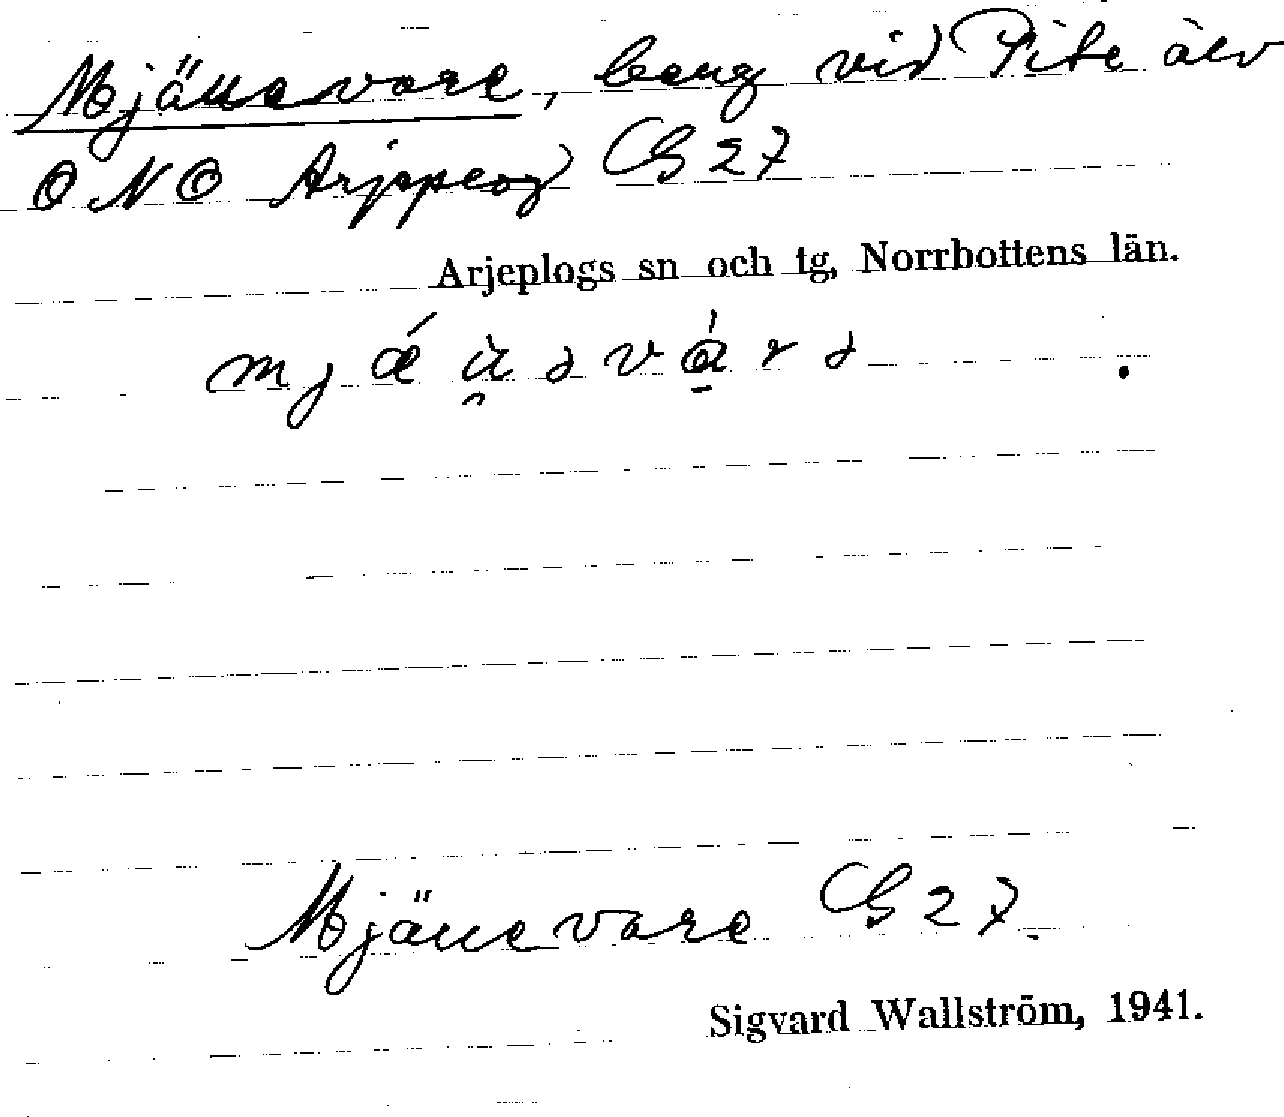 Mjäuevare, berg vid Pite älv
O N O Arjeplog G 27
Arjeplogs sn och tg, Norrbottens län.
Mjäuevare G 27.
Sigvard Wallström, 1941.